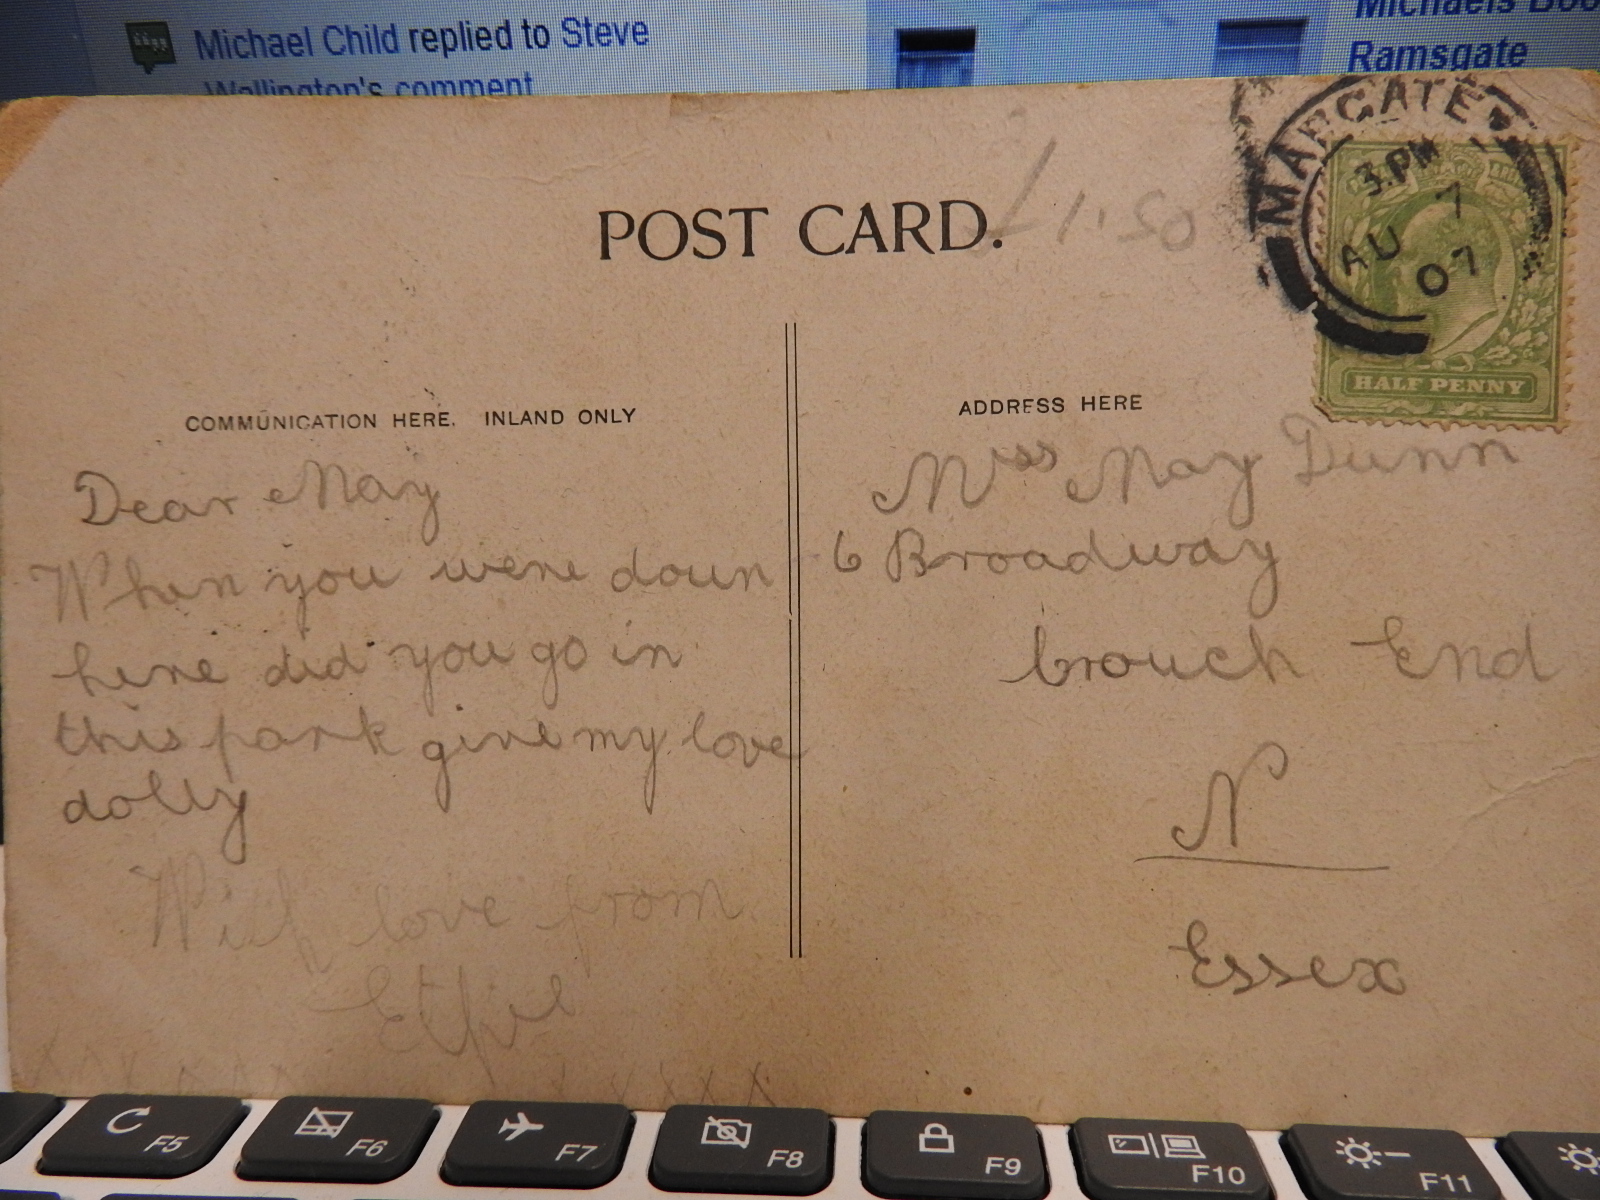 Michael Child replied to Steve
Wallington's comment
Michaels Boo
Ramsgate
POST CARD.
£1.50
MARGATE
3.PM
7
AU
07
HALF PENNY
COMMUNICATION HERE. INLAND ONLY
ADDRESS HERE
Dear May
When you were down
here did you go in
this park give my love
dolly
With love from
Ethel
X X X X X X X X X X X
Miss May Dunn
6 Broadway
Crouch End
N
Essex
F5
F6
F7
F8
F9
F10
F11